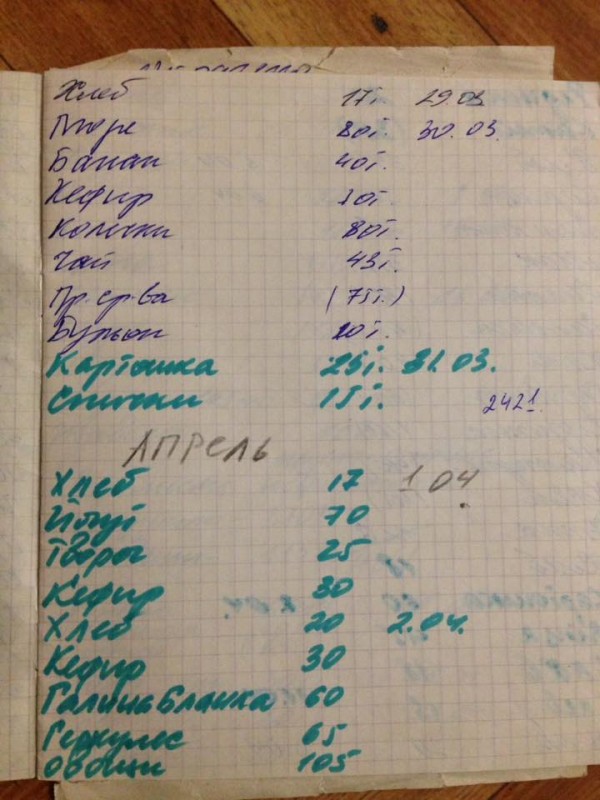 Хлеб 17г. 29.03
Пюре 80г. 30.03.
Банан 40г.
Кефир 30г.
Колечки 80г.
Чай 43г.
Пр. ср-ва (75г.)
Бульон 20г.
Картошка 25г. 31.03.
Спички 15г.
2421.
АПРЕЛЬ
Хлеб 17 1 04
Йогут 70
Творог 25
Кефир 30
Хлеб 20 2.04.
Кефир 30
Галина Бланка 60
Геркулес 65
Овощи 105